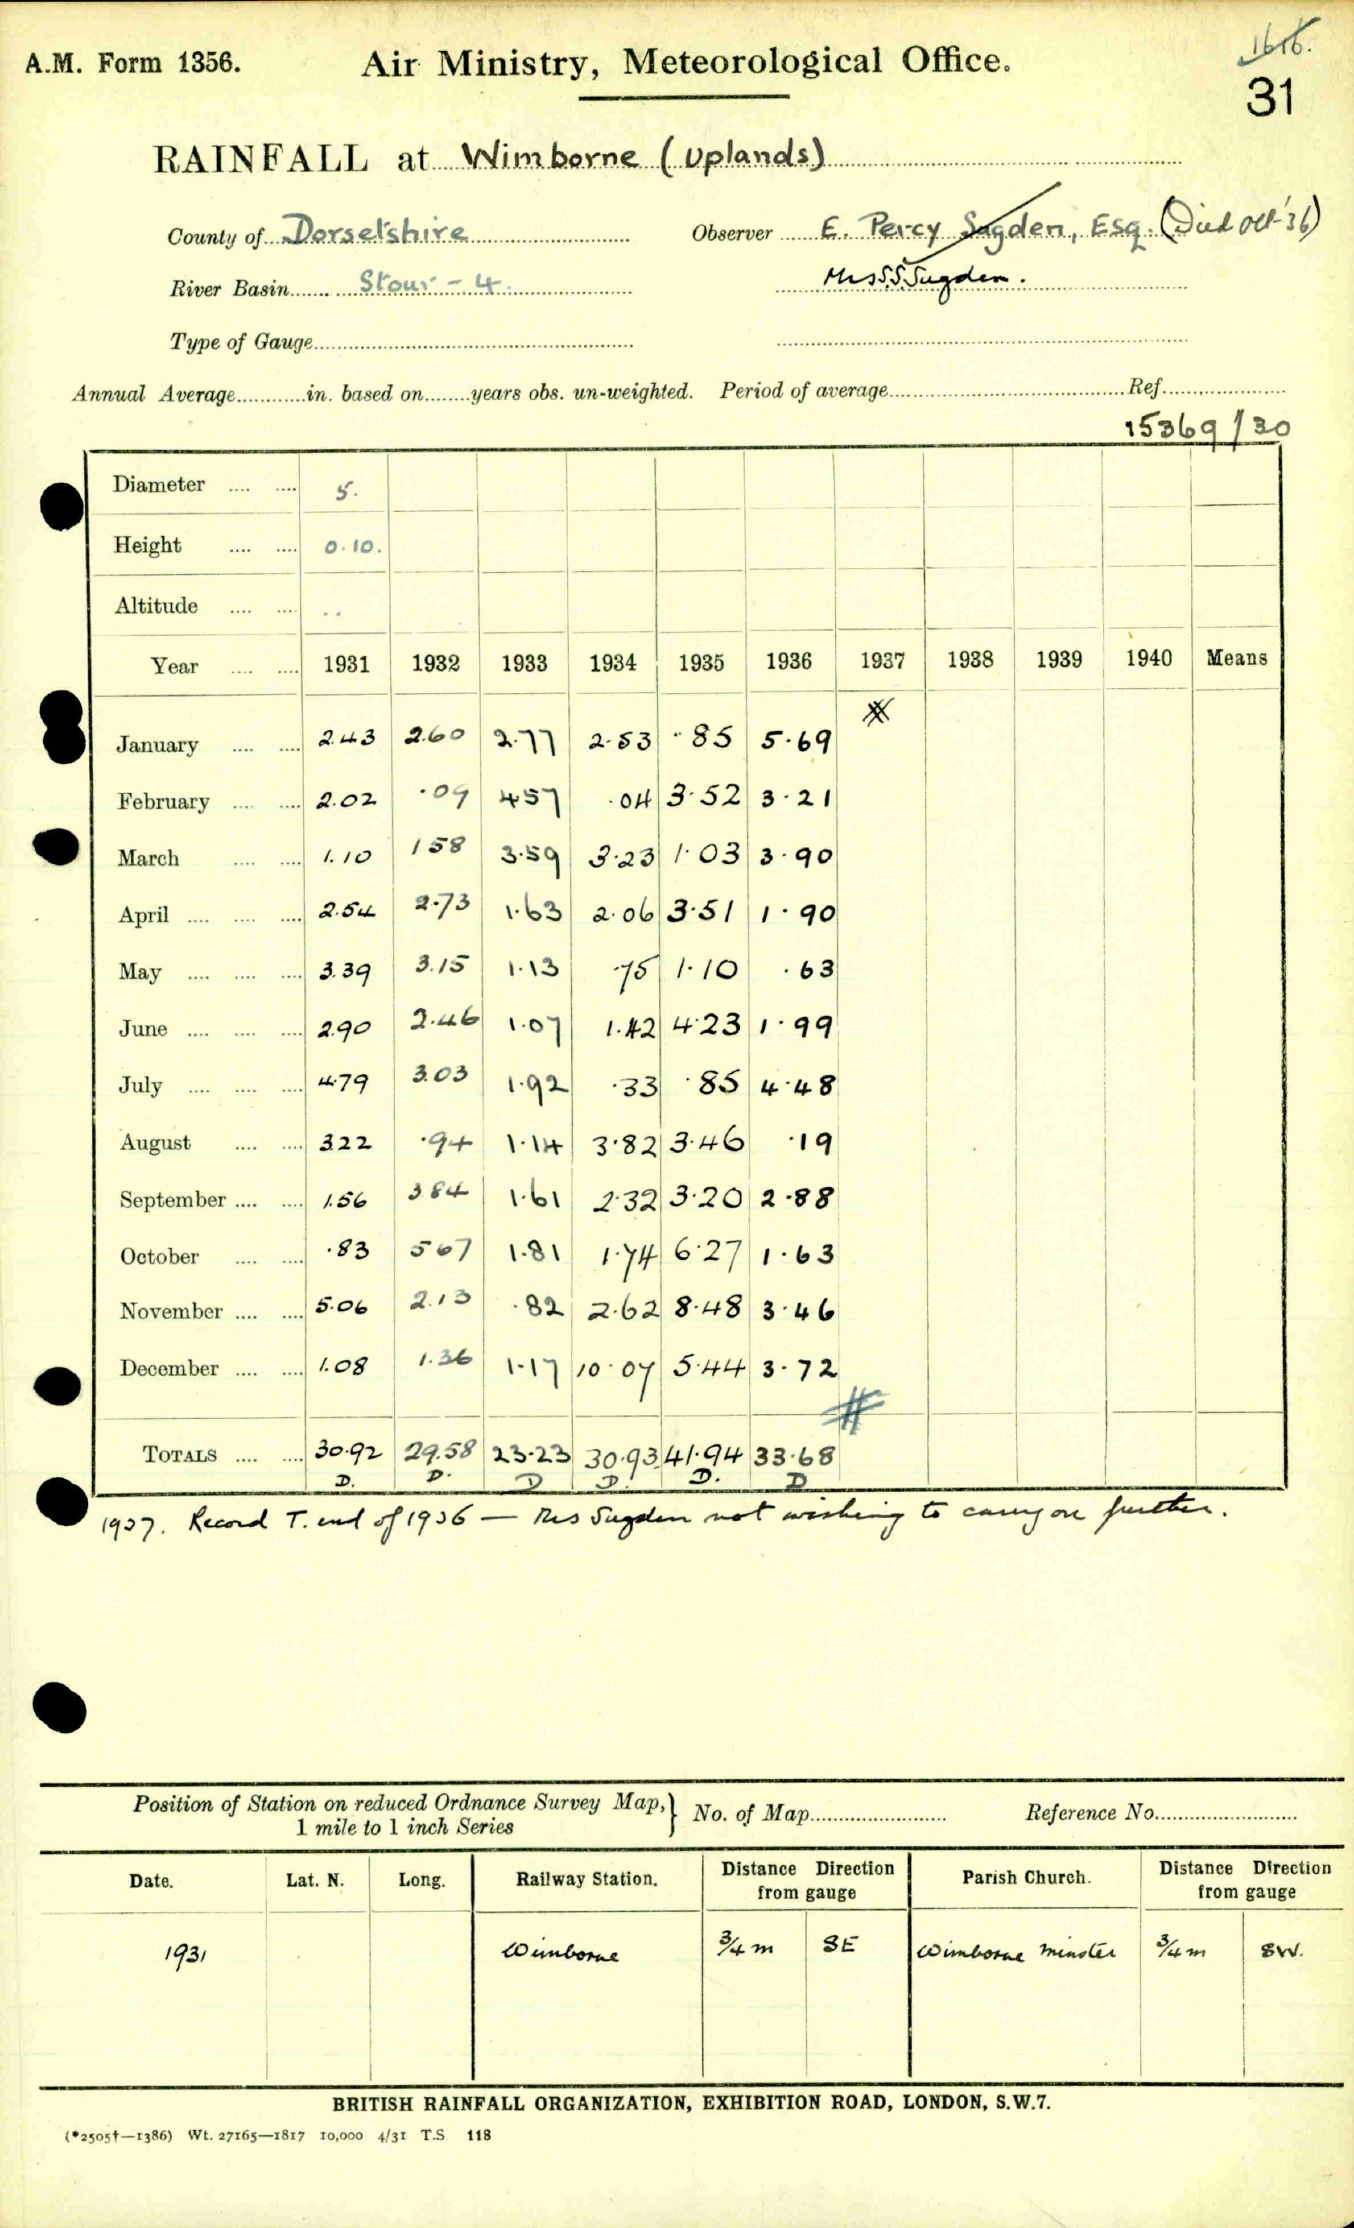 1616.
A.M. Form 1356. Air Ministry, Meteorological Office.
31
RAINFALL at Wimborne (Uplands)
County of Dorsetshire Observer E. Percy Sugden, Esq. (Died Oct '36)
River Basin Stour - 4. Mrs S.S. Sugden.
Type of Gauge
Annual Average in. based on years obs. un-weighted. Period of average Ref.
15369/30
Diameter 5.
Height 0.10.
Altitude ..
Year 1931 1932 1933 1934 1935 1936 1937 1938 1939 1940 Means
January 2.43 2.60 2.77 2.53 .85 5.69
February 2.02 .09 4.57 .04 3.52 3.21
March 1.10 1.58 3.59 3.23 1.03 3.90
April 2.54 2.73 1.63 2.06 3.51 1.90
May 3.39 3.15 1.13 .75 1.10 .63
June 2.90 2.46 1.07 1.42 4.23 1.99
July 4.79 3.03 1.92 .33 .85 4.48
August 3.22 .94 1.14 3.82 3.46 .19
September 1.56 3.84 1.61 2.32 3.20 2.88
October .83 5.67 1.81 1.74 6.27 1.63
November 5.06 2.13 .82 2.62 8.48 3.46
December 1.08 1.36 1.17 10.07 5.44 3.72
TOTALS 30.92 29.58 23.23 30.93 41.94 33.68
D. D. D D. D. D
1937. Record T. end of 1936 — Mrs Sugden not wishing to carry on further.
Position of Station on reduced Ordnance Survey Map, } No. of Map Reference No.
1 mile to 1 inch Series
Date. Lat. N. Long. Railway Station. Distance Direction from gauge Parish Church. Distance Direction from gauge
1931 Wimborne 3/4 m SE Wimborne Minster 3/4 m SW.
BRITISH RAINFALL ORGANIZATION, EXHIBITION ROAD, LONDON, S.W.7.
(*2505†—1386) Wt. 27165—1817 10,000 4/31 T.S 118